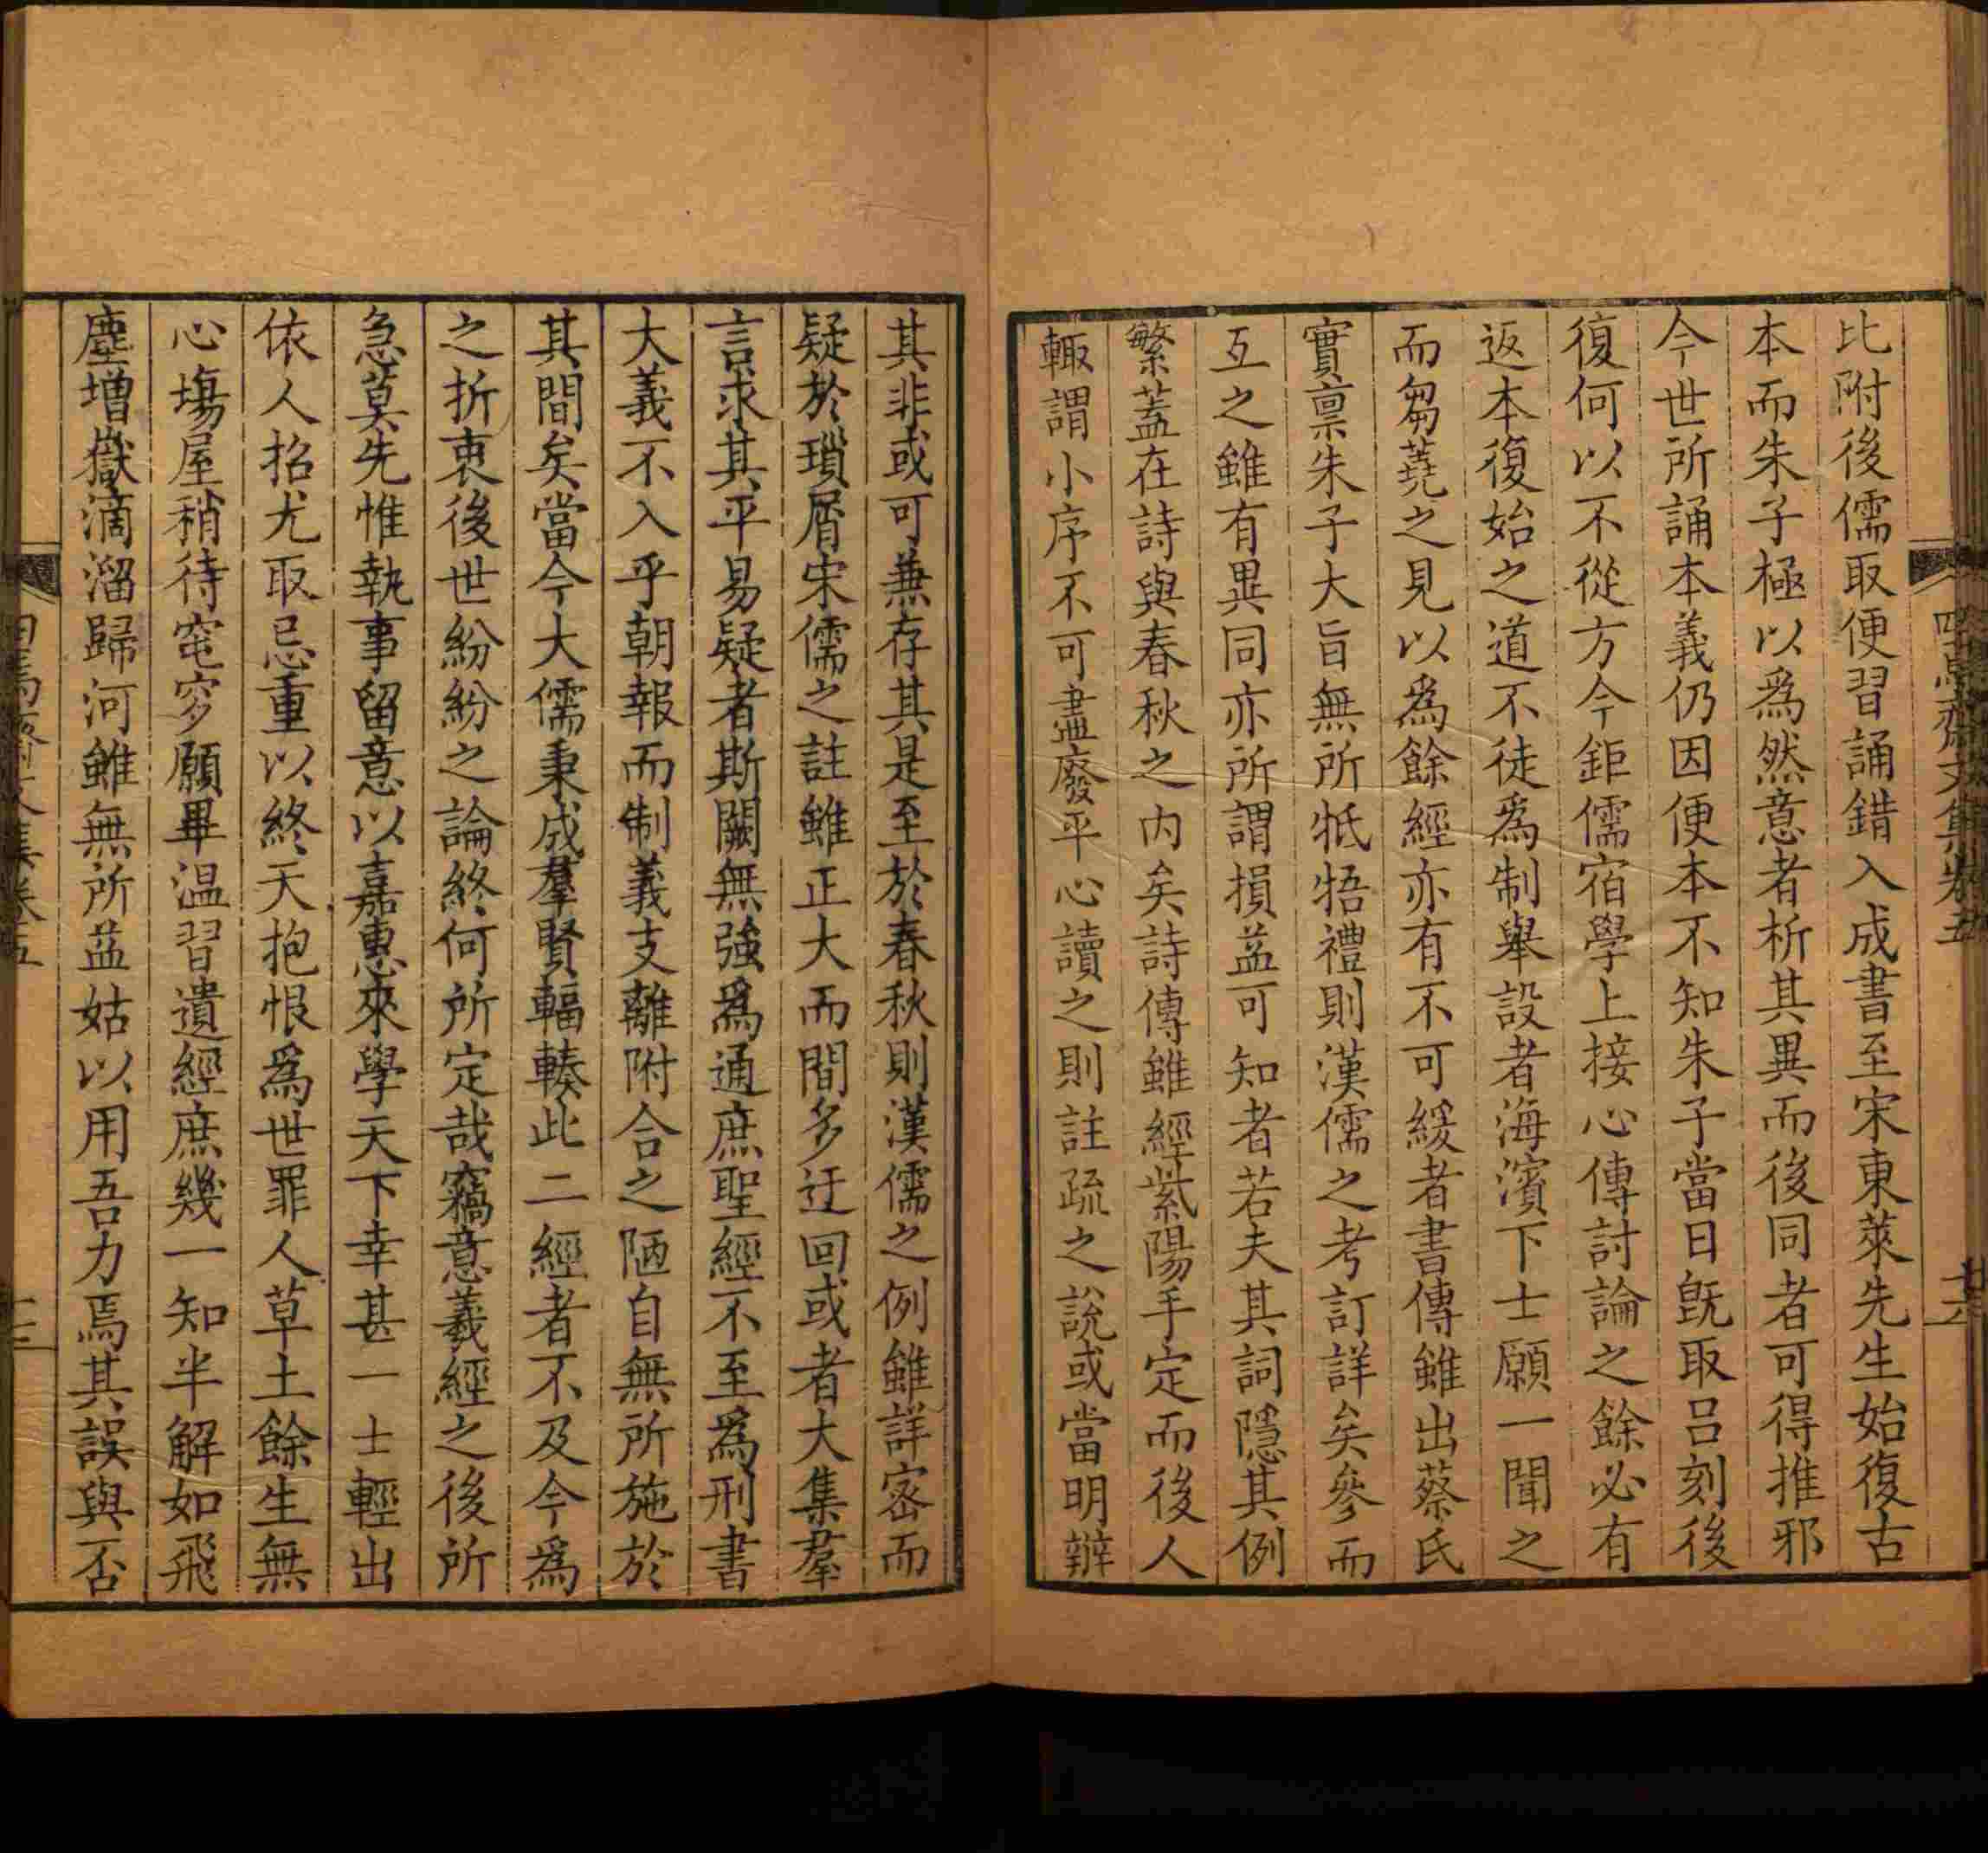 比附後儒取便習誦錯入成書至宋東萊先生始復古
本而朱子極以爲然意者析其異而後同者可得推邪
今世所誦本義仍因便本不知朱子當日旣取呂刻後
復何以不從方今鉅儒宿學上接心傳討論之餘必有
返本復始之道不徒爲制舉設者海濱下士願一聞之
而芻蕘之見以爲餘經亦有不可緩者書傳雖出蔡氏
實禀朱子大旨無所牴牾禮則漢儒之考訂詳矣參而
互之雖有異同亦所謂損益可知者若夫其詞隱其例
繁蓋在詩與春秋之内矣詩傳雖經紫陽手定而後人
輙謂小序不可盡廢平心讀之則註疏之說或當明辯
其非或可兼存其是至於春秋則漢儒之例雖詳密而
疑於瑣屑宋儒之註雖正大而間多迂回或者大集羣
言求其平易疑者斯闕無強爲通庶聖經不至爲刑書
大義不入乎朝報而制義支離附合之陋自無所施於
其間矣當今大儒秉成羣賢輻輳此二經者不及今爲
之折衷後世紛紛之論終何所定哉竊意羲經之後所
急莫先惟執事留意以嘉惠來學天下幸甚一士輕出
依人招尤取忌重以終天抱恨爲世罪人草土餘生無
心塲屋稍待窀穸願畢温習遺經庶幾一知半解如飛
塵增嶽滴溜歸河雖無所益姑以用吾力焉其誤與否